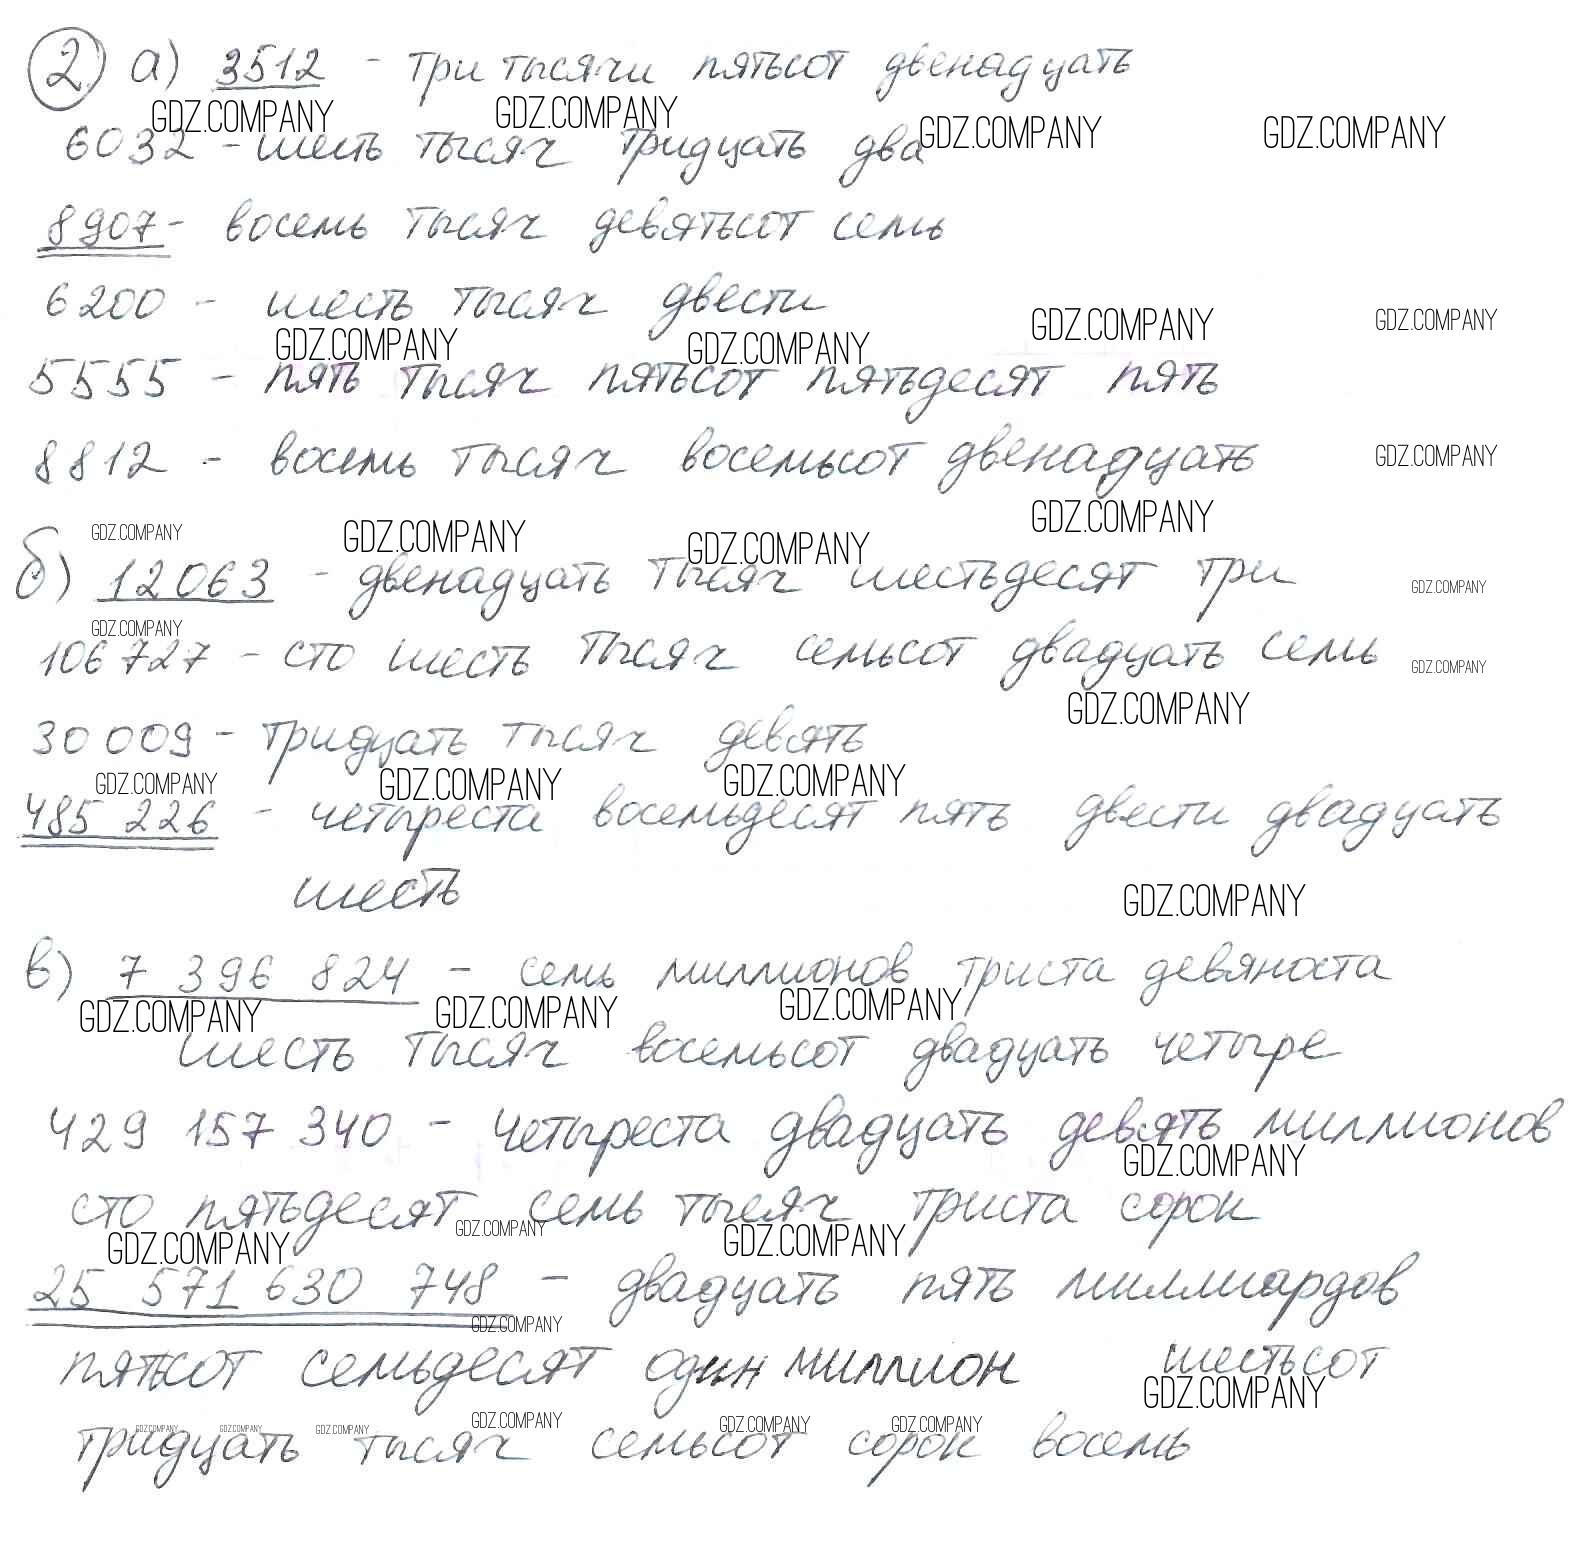 2) а) 3512 - три тысячи пятьсот двенадцать
GDZ.COMPANY GDZ.COMPANY GDZ.COMPANY GDZ.COMPANY
6032 - шесть тысяч тридцать два
8907 - восемь тысяч девятьсот семь
6200 - шесть тысяч двести
GDZ.COMPANY GDZ.COMPANY GDZ.COMPANY GDZ.COMPANY
5555 - пять тысяч пятьсот пятьдесят пять
8812 - восемь тысяч восемьсот двенадцать GDZ.COMPANY
GDZ.COMPANY GDZ.COMPANY GDZ.COMPANY GDZ.COMPANY
б) 12063 - двенадцать тысяч шестьдесят три GDZ.COMPANY
GDZ.COMPANY
106727 - сто шесть тысяч семьсот двадцать семь GDZ.COMPANY
GDZ.COMPANY
30009 - тридцать тысяч девять
GDZ.COMPANY GDZ.COMPANY GDZ.COMPANY
485 226 - четыреста восемьдесят пять двести двадцать
шесть GDZ.COMPANY
в) 7 396 824 - семь миллионов триста девяноста
GDZ.COMPANY GDZ.COMPANY GDZ.COMPANY
шесть тысяч восемьсот двадцать четыре
429 157 340 - четыреста двадцать девять миллионов
GDZ.COMPANY
сто пятьдесят семь тысяч триста сорок
GDZ.COMPANY GDZ.COMPANY GDZ.COMPANY
25 571 630 748 - двадцать пять миллиардов
GDZ.COMPANY
пятьсот семьдесят один миллион шестьсот
GDZ.COMPANY
GDZ.COMPANY GDZ.COMPANY GDZ.COMPANY GDZ.COMPANY GDZ.COMPANY GDZ.COMPANY
тридцать тысяч семьсот сорок восемь